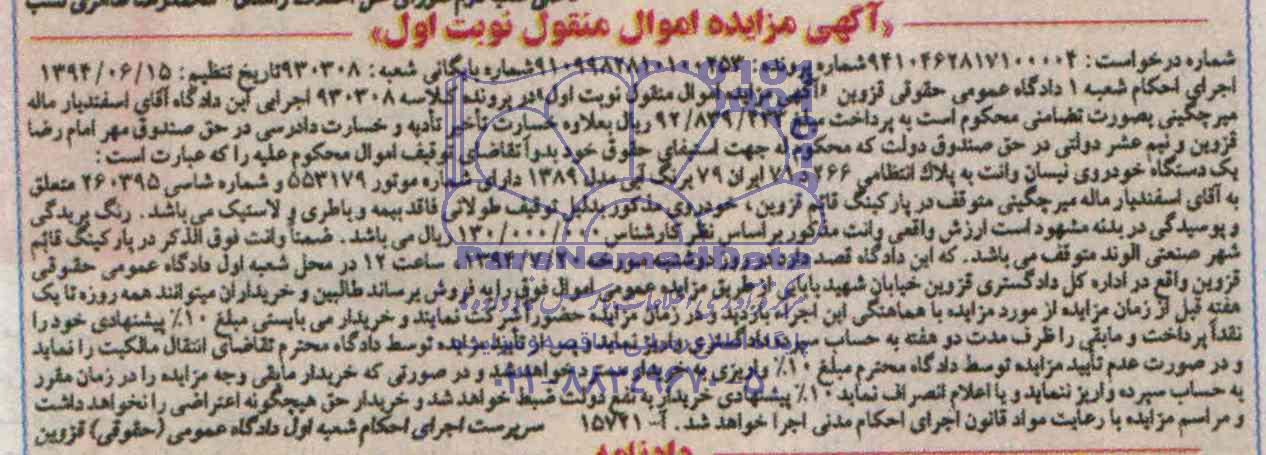 «آگهی مزایده اموال منقول نوبت اول»
شماره درخواست: ۹۴۱۰۴۶۲۸۱۷۱۰۰۰۰۴ شماره پرونده: ۹۱۰۹۹۸۲۸۱۰۱۰۰۲۵۳ شماره بایگانی شعبه: ۹۳۰۳۰۸ تاریخ تنظیم: ۱۳۹۴/۰۶/۱۵
اجرای احکام شعبه ۱ دادگاه عمومی حقوقی قزوین «آگهی مزایده اموال منقول نوبت اول» در پرونده کلاسه ۹۳۰۳۰۸ اجرایی این دادگاه آقای اسفندیار ماله
میرچگینی بصورت تضامنی محکوم است به پرداخت مبلغ ۹۲/۸۳۹/۲۳۲ ریال بعلاوه خسارت تأخیر تأدیه و خسارت دادرسی در حق صندوق مهر امام رضا
قزوین و نیم عشر دولتی در حق صندوق دولت که محکوم له جهت استیفای حقوق خود بدوا تقاضای توقیف اموال محکوم علیه را که عبارت است:
یک دستگاه خودروی نیسان وانت به پلاک انتظامی ۲۶۶ ایران ۷۹ برنگ آبی مدل ۱۳۸۹ دارای شماره موتور ۵۵۳۱۷۹ و شماره شاسی ۲۶۰۳۹۵ متعلق
به آقای اسفندیار ماله میرچگینی متوقف در پارکینگ قائم قزوین، خودروی مذکور بدلیل توقیف طولانی فاقد بیمه و باطری و لاستیک می باشد. رنگ پریدگی
و پوسیدگی در بدنه مشهود است ارزش واقعی وانت مذکور بر اساس نظر کارشناس ۱۳۰/۰۰۰/ ریال می باشد. ضمناً وانت فوق الذکر در پارکینگ قائم
شهر صنعتی الوند متوقف می باشد. که این دادگاه قصد دارد در روز دوشنبه مورخه ساعت ۱۲ در محل شعبه اول دادگاه عمومی حقوقی
قزوین واقع در اداره کل دادگستری قزوین خیابان شهید بابائی از طریق مزایده عمومی اموال فوق را به فروش برساند طالبین و خریداران میتوانند همه روزه تا یک
هفته قبل از زمان مزایده از مورد مزایده با هماهنگی این اجرا بازدید و در زمان مزایده حضورا شرکت نمایند و خریدار می بایستی مبلغ ۱۰٪ پیشنهادی خود را
نقداً پرداخت و مابقی را ظرف مدت دو هفته به حساب سپرده دادگستری واریز نماید و پس از تأیید مزایده توسط دادگاه محترم تقاضای انتقال مالکیت را نماید
و در صورت عدم تأیید مزایده توسط دادگاه محترم مبلغ ۱۰٪ واریزی به خریدار مسترد خواهد شد و در صورتی که خریدار مابقی وجه مزایده را در زمان مقرر
به حساب سپرده واریز ننماید و یا اعلام انصراف نماید ۱۰٪ پیشنهادی خریدار به نفع دولت ضبط خواهد شد و خریدار حق هیچگونه اعتراضی را نخواهد داشت
و مراسم مزایده با رعایت مواد قانون اجرای احکام مدنی اجرا خواهد شد. آ- ۱۵۷۲۱ سرپرست اجرای احکام شعبه اول دادگاه عمومی (حقوقی) قزوین
ParsNamadData
۰۲۱-۸۸۳۴۹۶۷۰-۵
دادنامه